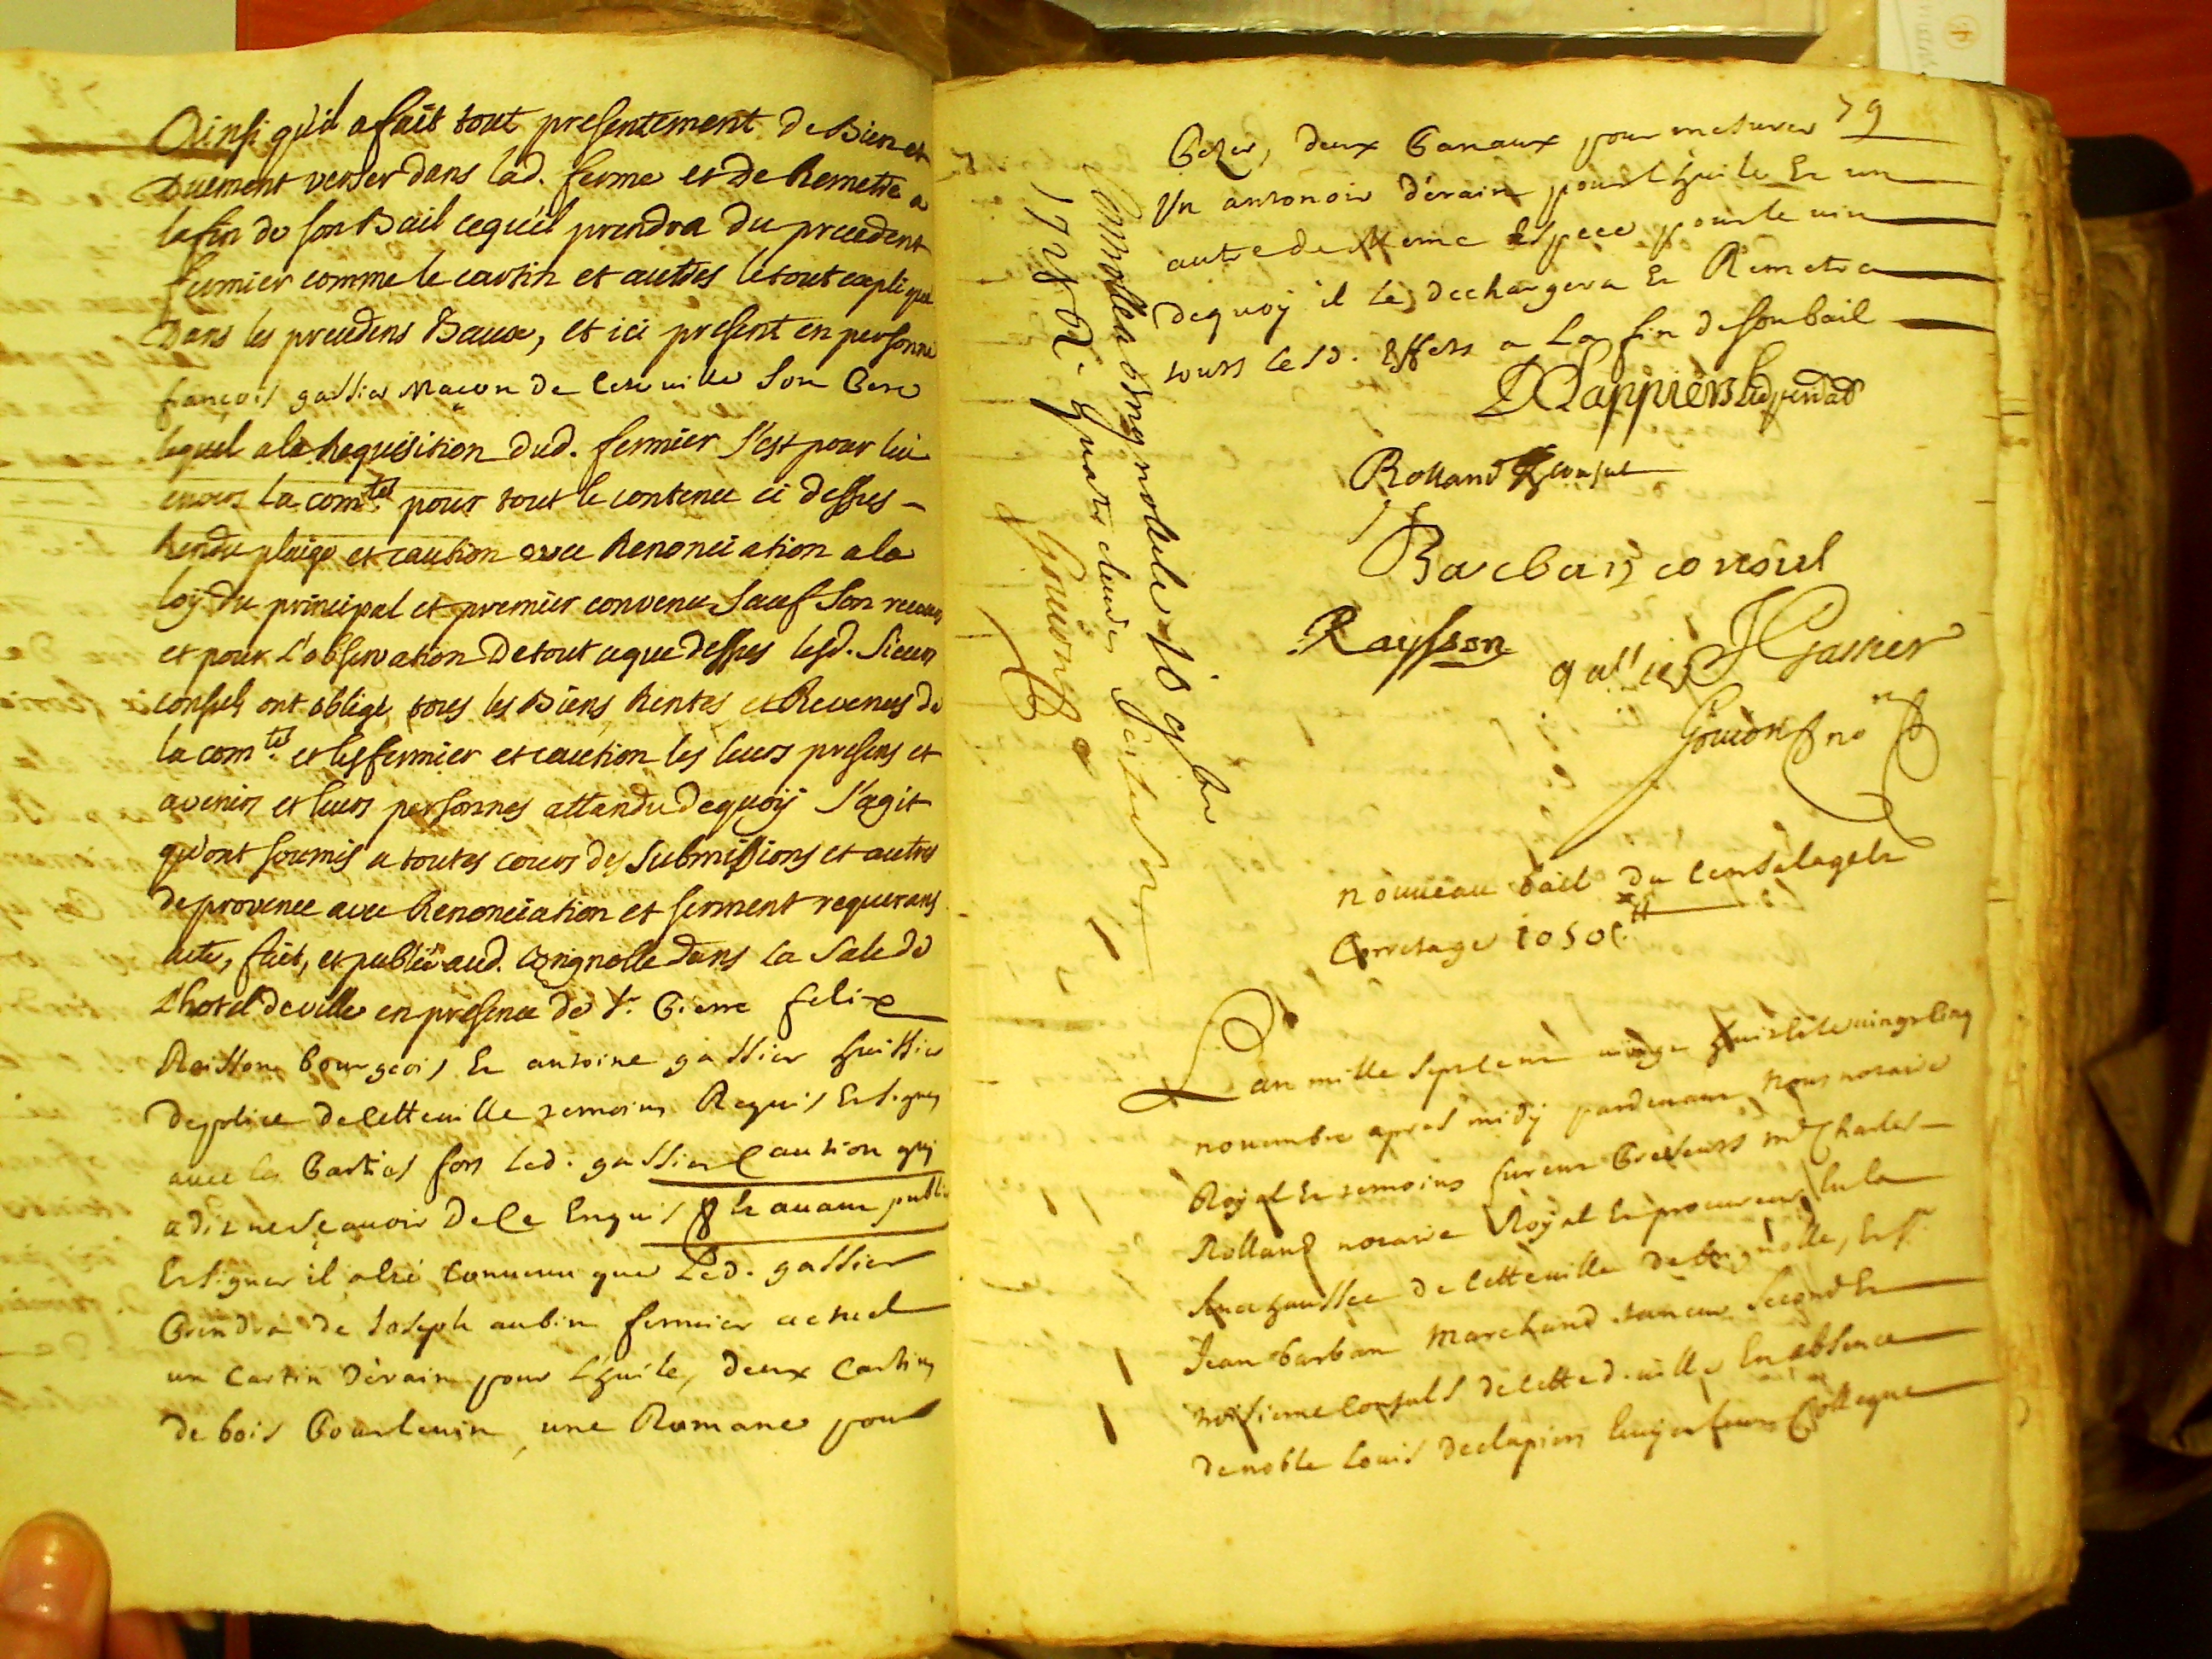 Ainsi qu'il a fait tout presentement de Bien et
Duement verser dans lad. ferme et de Remettre a
la fin de son Bail ce qu'il prendra du precedent
fermier comme le cartin et autres le tout expliqué
Dans les precedens Baux, et ici present en personne
françois gassier Maçon de cete ville Son Pere
lequel a la Requisition dud. fermier s'est pour lui
envers la com.té pour tout le contenu ci dessus
Rendu pleige et caution avec Renonciation a la
loy du principal et premier convenu Sauf Son recours
et pour L'observation De tout ce que dessus lesd. Sieurs
consuls ont obligé tous les Biens Rentes et Revenus de
la com.té et les fermier et caution les leurs presens et
avenirs et leurs personnes attandu de quoy s'agit
qu'ont soumis a toutes cours des Submissions et autres
de provence avec Renonciation et serment requerans
acte, fait, et publié aud. Brignolle Dans la Sale de
L'hotel de ville en presence de Sr. Pierre felix
Raisson bourgeois Et antoine gassier huissier
de police de cette ville temoins Requis Et signes
avec les Parties fors led. gassier Caution qui
a dit ne sçavoir De Ce Enquis Et avant publier
Et signer il a été Convenu que Led. gassier
Prendra de Joseph aubin fermier actuel
un Cartin d'érain pour L'huile, deux Cartins
de bois Pour le vin, une Romane pour
79
Pezer, deux Panaux pour mesurer
Un antonoir d'érain pour L'huile Et un
autre de Meme Espece pour le vin
de quoy il les dechargera Et Remetra
tous lesd. Effets a La fin de son bail
Rolland Consul
Barban consul
Raysson
gassier J Gassier
Gouion no.re
Controllé a Brignolle le 16 9bre
1728 R. quatre livres
Gouion
nouveau bail du Censalage Et
Corretage 1050 tt
L'an mille sept cent vingt huit et le vingt cinq
novembre apres midy pardevant Nous notaire
Royal Et temoins furent Presents Me. Charles
Rolland notaire Royal Et procureur En la
Senechaussée de cette ville de Brignolle, Et Sr.
Jean barban Marchand taneur Second Et
troisieme Consuls de cette d. ville En absence
de noble Louis declapiers Ecuyer leur Collegue